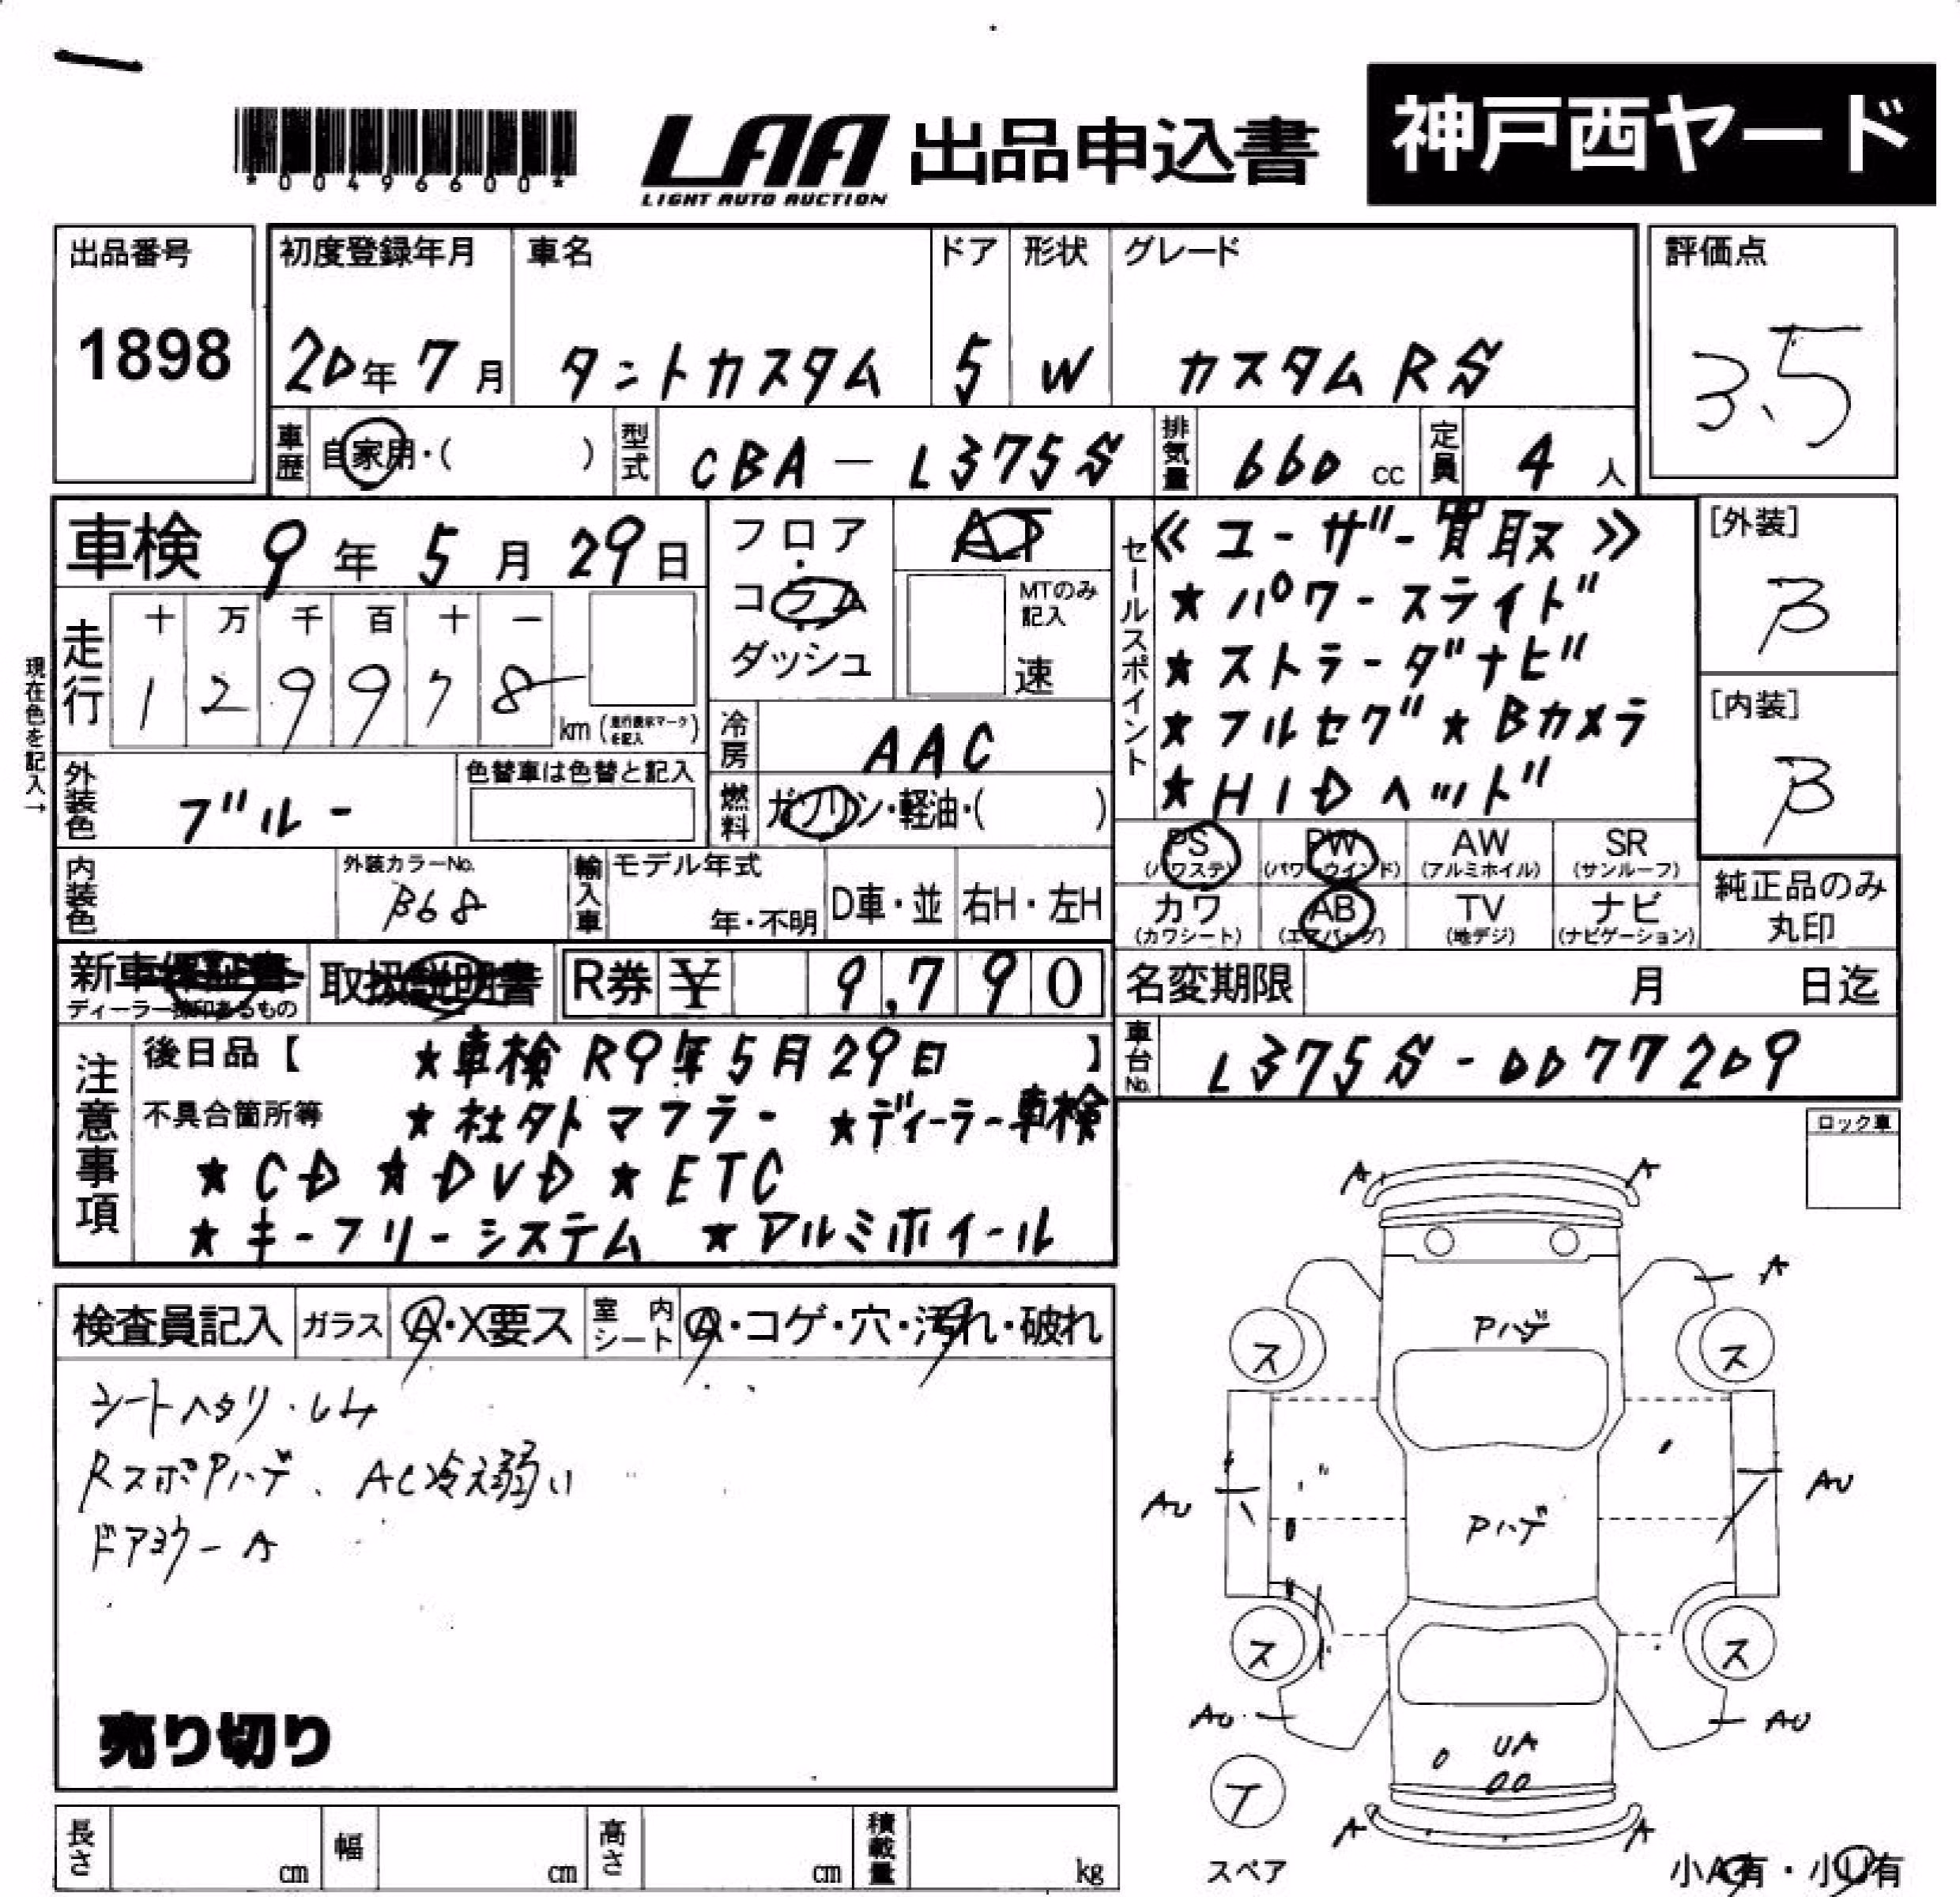 *00496600*
LAA
LIGHT AUTO AUCTION
出品申込書
神戸西ヤード
出品番号
1898
初度登録年月
20年7月
車名
タントカスタム
ドア
5
形状
W
グレード
カスタムRS
評価点
3.5
車歴 自家用・( )
型式 CBA-L375S
排気量 660 cc
定員 4 人
車検 9年5月29日
フロア
コラム
ダッシュ
AT
MTのみ記入
速
走行
十 万 千 百 十 一
1 2 9 9 7 8
km (走行表示マークを記入)
現在色を記入→
外装色 ブルー
色替車は色替と記入
冷房 AAC
燃料 ガソリン・軽油・( )
セールスポイント
≪ユーザー買取≫
★パワースライド
★ストラーダナビ
★フルセグ ★Bカメラ
★HIDヘッド
[外装]
B
[内装]
B
PS (パワステ)
PW (パワーウインド)
AW (アルミホイル)
SR (サンルーフ)
カワ (カワシート)
AB (エアバッグ)
TV (地デジ)
ナビ (ナビゲーション)
純正品のみ
丸印
内装色
外装カラーNo.
B68
輸入車
モデル年式
年・不明
D車・並
右H・左H
新車保証書
ディーラー捺印あるもの
取扱説明書
R券 ¥ 9,790
名変期限 月 日迄
車台No. L375S-0077209
注意事項
後日品【 ★車検R9年5月29日 】
不具合箇所等 ★社外マフラー ★ディーラー車検
★CD ★DVD ★ETC
★キーフリーシステム ★アルミホイール
ロック車
検査員記入
ガラス A・X要ス
室内シート A・コゲ・穴・汚れ・破れ
シートヘタリ・シム
RスポPハゲ、AC冷え弱い
ドアミラーA
売り切り
A A
A
Pハゲ
ス ス
AU AU
Pハゲ
ス ス
AU AU
UA
T
スペア
A A
小A有・小U有
長さ cm
幅 cm
高さ cm
積載量 kg